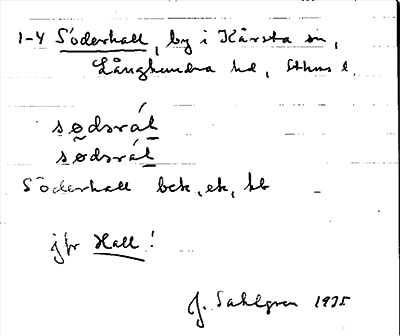 1-4 Söderhall, by i Kårsta sn,
Långhundra hd, Sthms l.
sødsrál
sødsrál
Söderhall bck, ek, hb
jfr Hall!
J. Sahlgren 1935